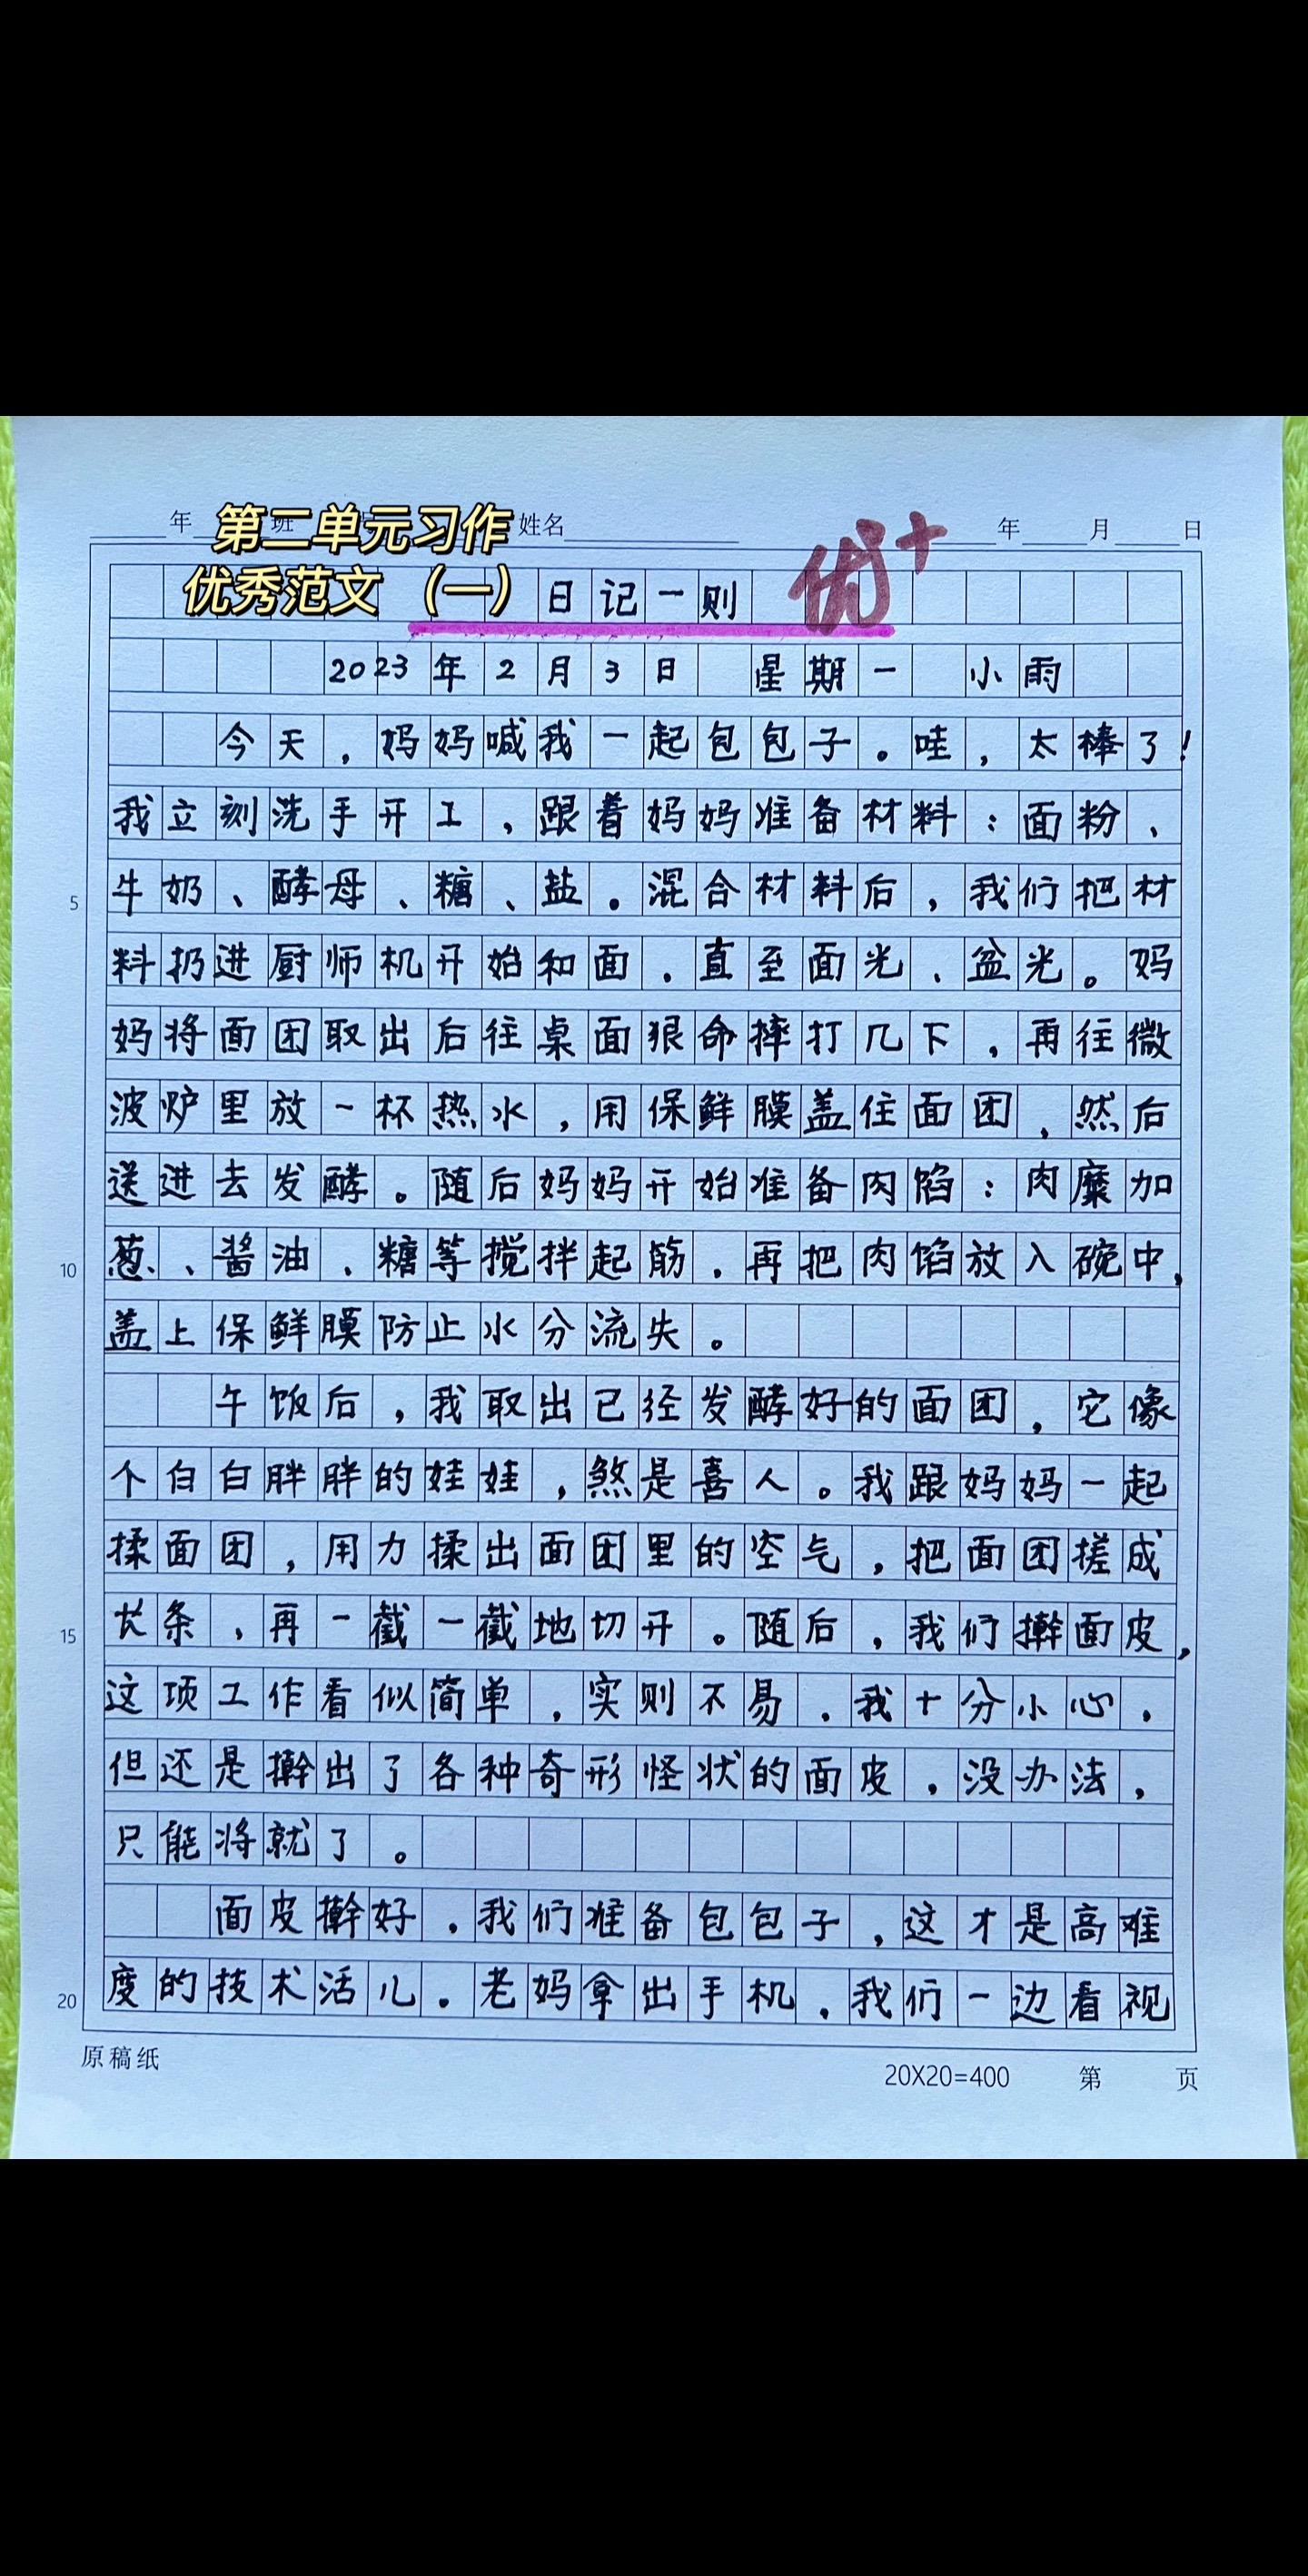 年 班 姓名 年 月 日
第二单元习作
优秀范文（一）
日记一则
优+
2023年2月3日 星期一 小雨
今天，妈妈喊我一起包包子。哇，太棒了！
我立刻洗手开工，跟着妈妈准备材料：面粉、
牛奶、酵母、糖、盐。混合材料后，我们把材
5
料扔进厨师机开始和面，直至面光、盆光。妈
妈将面团取出后往桌面狠命摔打几下，再往微
波炉里放一杯热水，用保鲜膜盖住面团，然后
送进去发酵。随后妈妈开始准备肉馅：肉糜加
葱、酱油、糖等搅拌起筋，再把肉馅放入碗中，
10
盖上保鲜膜防止水分流失。
午饭后，我取出已经发酵好的面团，它像
个白白胖胖的娃娃，煞是喜人。我跟妈妈一起
揉面团，用力揉出面团里的空气，把面团搓成
长条，再一截一截地切开。随后，我们擀面皮，
15
这项工作看似简单，实则不易。我十分小心，
但还是擀出了各种奇形怪状的面皮，没办法，
只能将就了。
面皮擀好，我们准备包包子，这才是高难
度的技术活儿。老妈拿出手机，我们一边看视
20
原稿纸
20X20=400 第 页